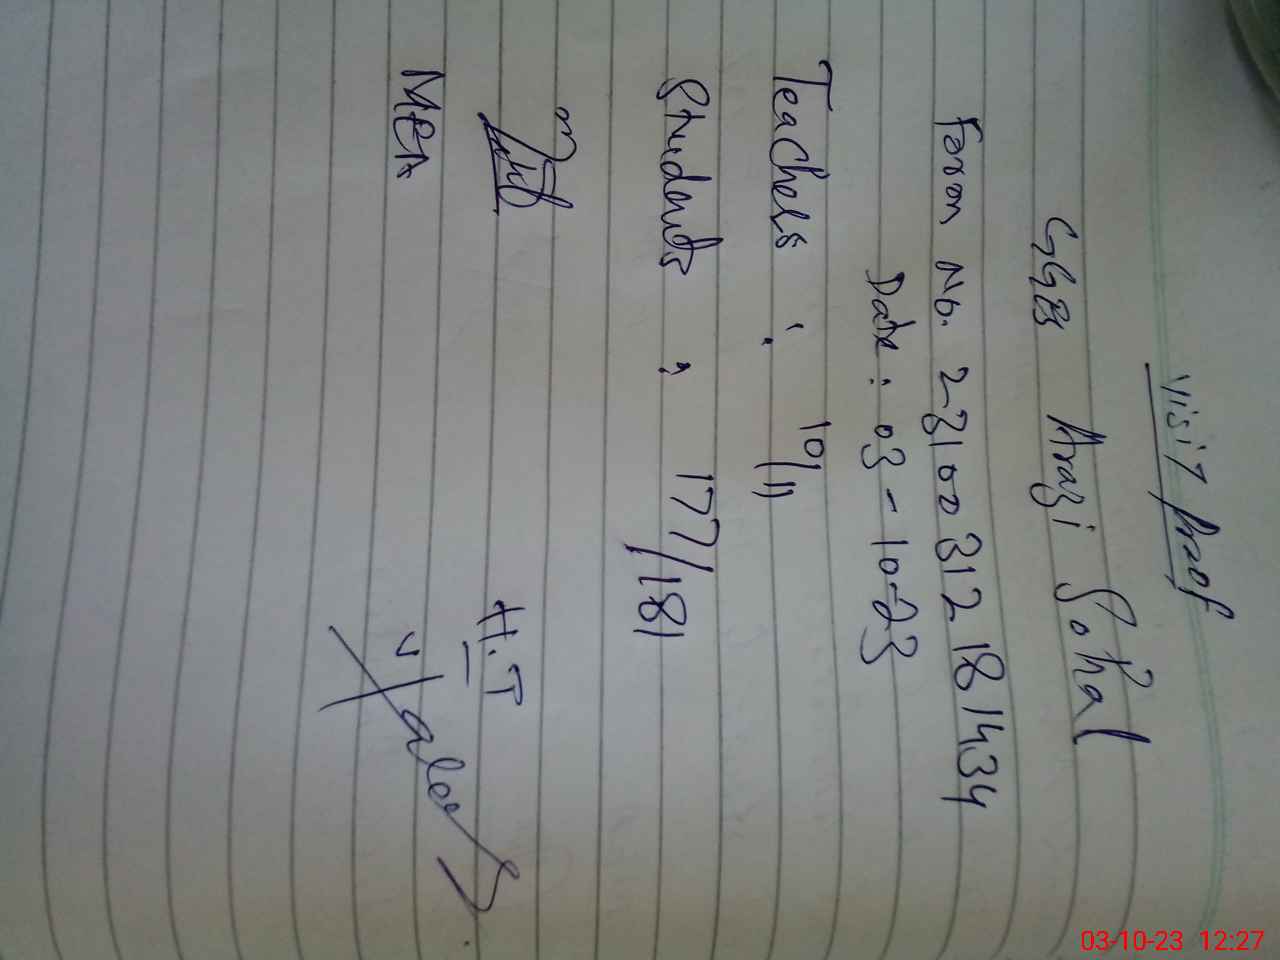 Visit Proof
GGES Arazi Sohal
Form No. 23100312181434
Date : 03-10-23
Teachers : 10/11
Students : 177/181
H.T
MEA
03-10-23 12:27